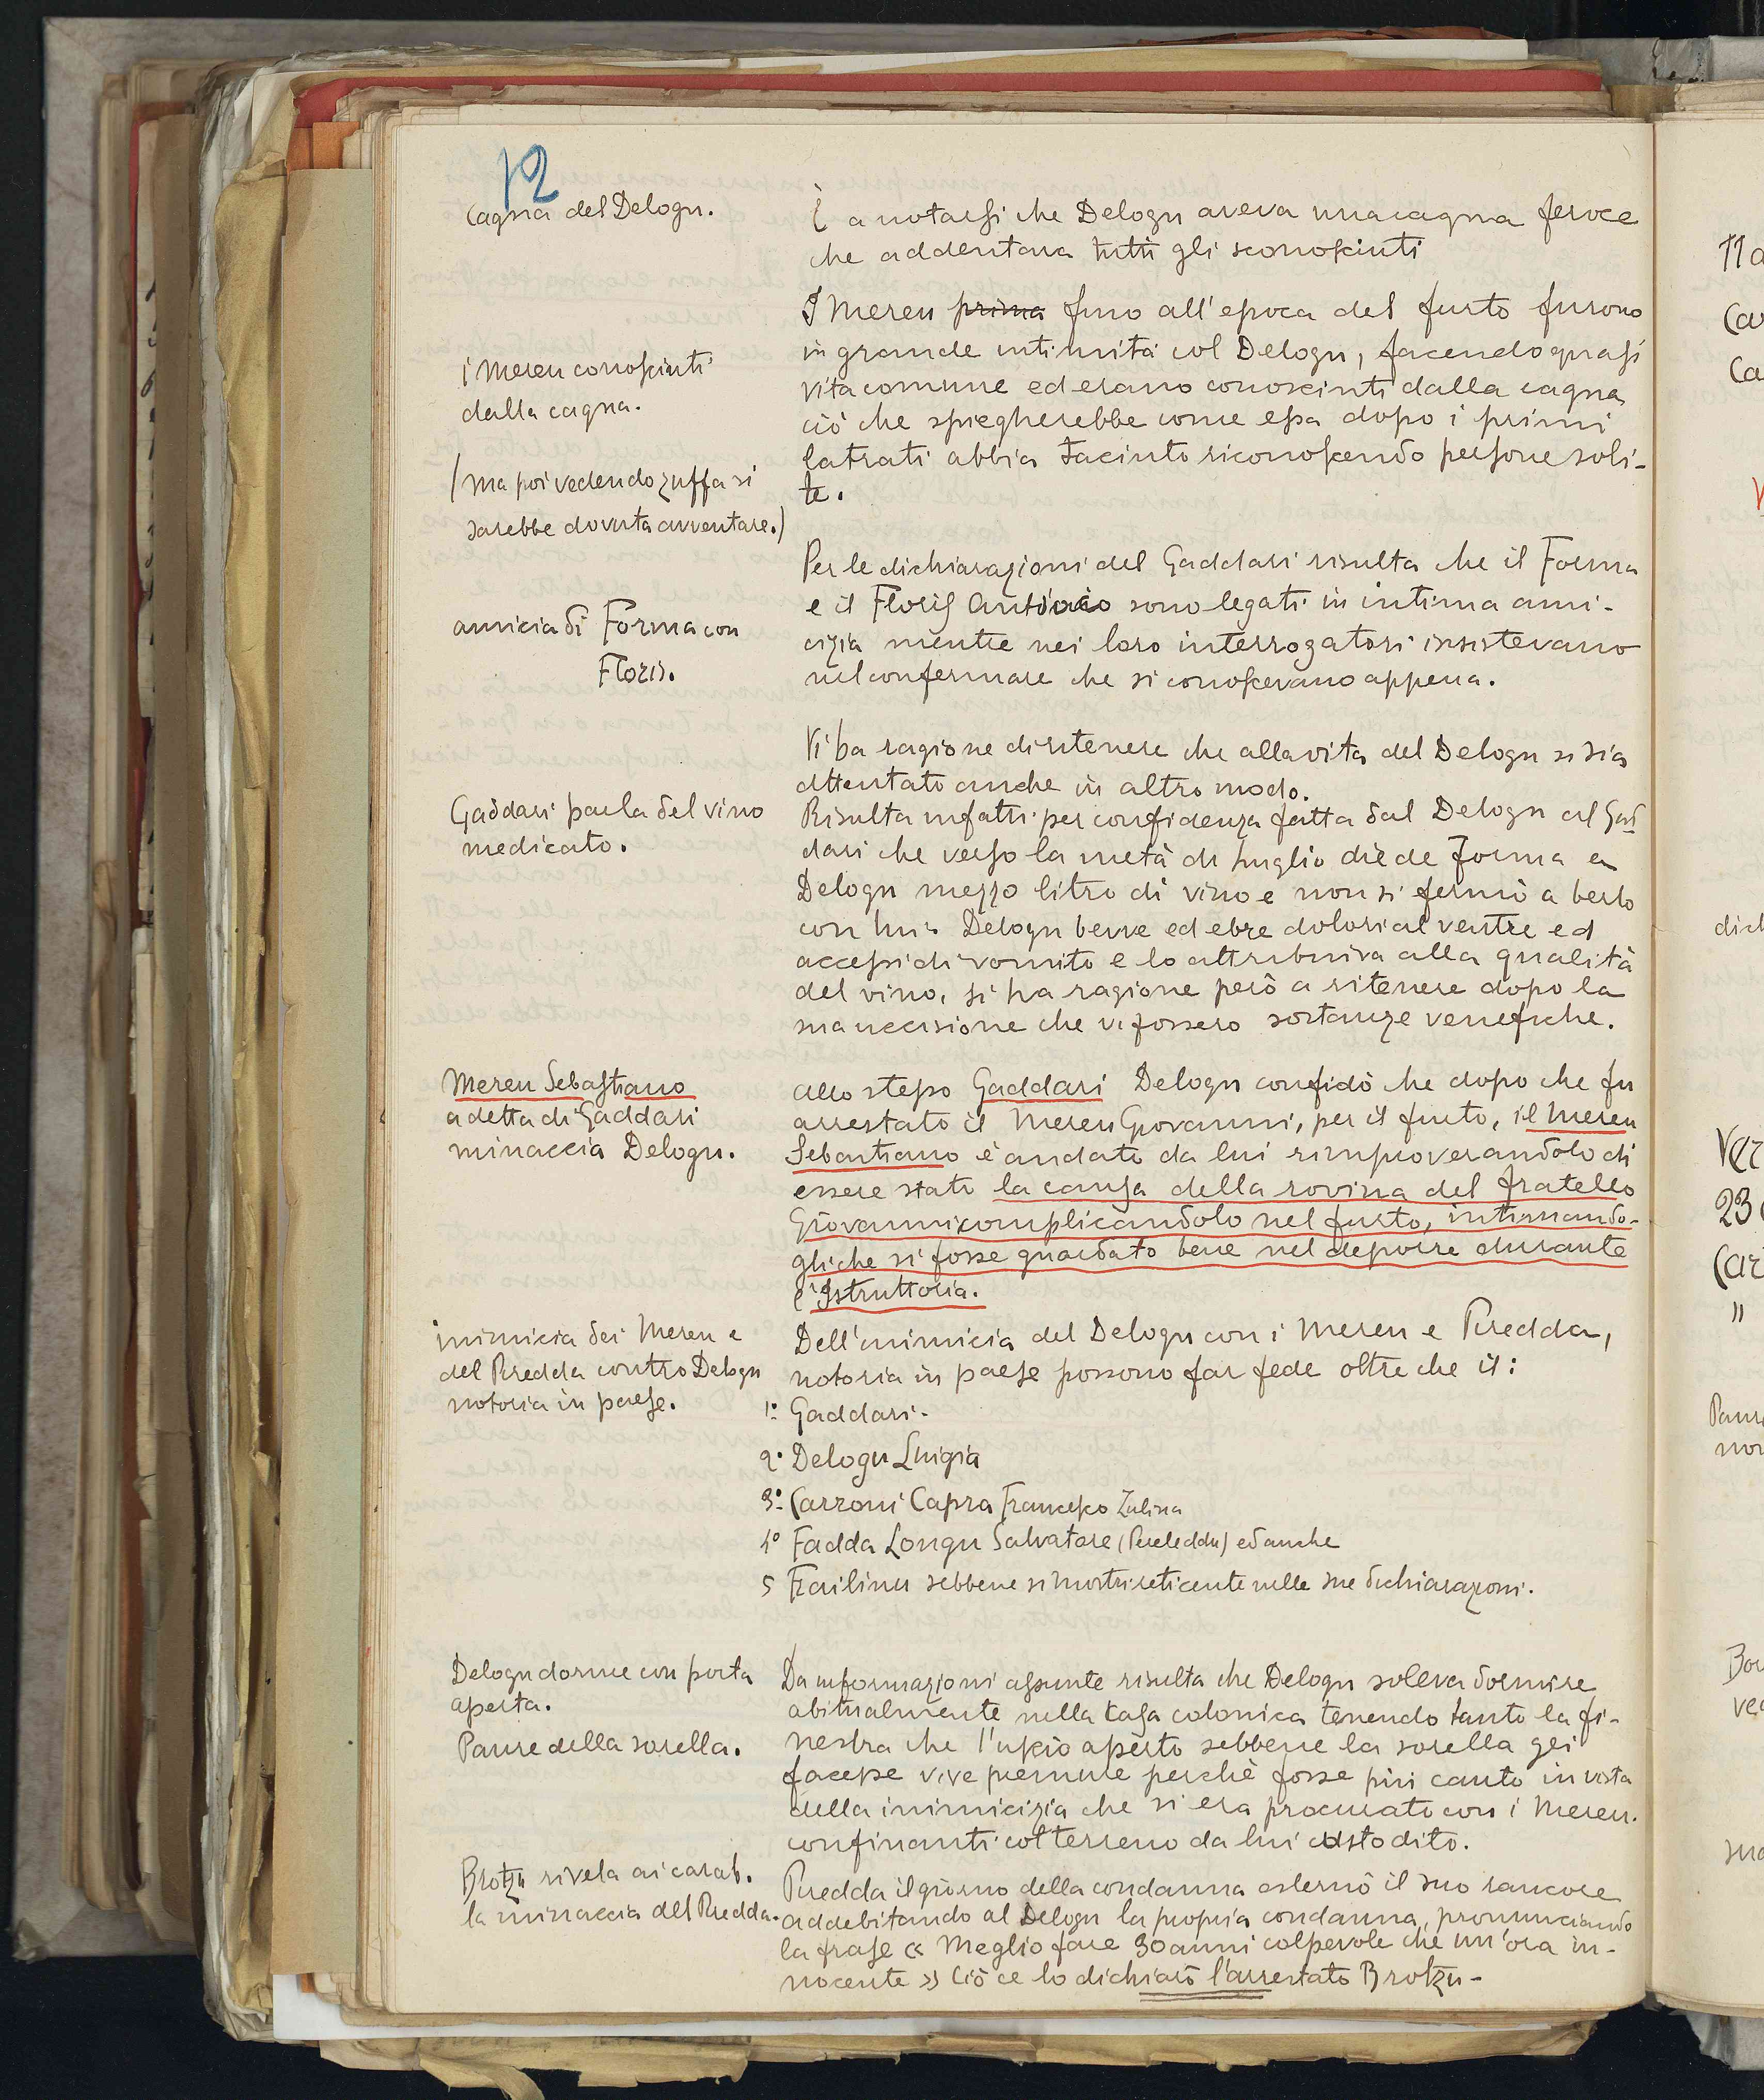 12
Cagna del Delogu.
È a notarsi che Delogu aveva una cagna feroce
che addentava tutti gli sconosciuti
I Mereu prima fino all'epoca del furto furono
in grande intimità col Delogu, facendo quasi
vita comune ed erano conosciuti dalla cagna
ciò che spiegherebbe come essa dopo i primi
latrati abbia taciuto riconoscendo persone soli-
te.
i Mereu conosciuti
dalla cagna.
(ma poi vedendo zuffa si
sarebbe dovuta avventare.)
Per le dichiarazioni del Gaddari risulta che il Forma
e il Floris Antonio sono legati in intima ami-
cizia mentre nei loro interrogatori insistevano
nel confermare che si conoscevano appena.
amicizia di Forma con
Floris.
Vi ha ragione di ritenere che alla vita del Delogu si sia
attentato anche in altro modo.
Risulta infatti per confidenza fatta dal Delogu al Gad
dari che verso la metà di luglio diede Forma a
Delogu mezzo litro di vino e non si fermò a berlo
con lui. Delogu bevve ed ebbe dolori al ventre ed
accessi di vomito e lo attribuiva alla qualità
del vino, si ha ragione però a ritenere dopo la
sua uccisione che vi fossero sostanze venefiche.
Gaddari parla del vino
medicato.
Mereu Sebastiano
a detta di Gaddari
minaccia Delogu.
Allo stesso Gaddari Delogu confidò che dopo che fu
arrestato il Mereu Giovanni, per il furto, il Mereu
Sebastiano è andato da lui rimproverandolo di
essere stato la causa della rovina del fratello
Giovanni complicandolo nel furto, intimando-
gli che si fosse guardato bene nel deporre durante
l'Istruttoria.
inimicia dei Mereu e
del Piredda contro Delogu
notoria in paese.
Dell'inimicia del Delogu con i Mereu e Piredda,
notoria in paese possono far fede oltre che il:
1º Gaddari.
2º Delogu Luigia
3º Carzoni Capra Francesco
4º Fadda Longu Salvatore ed anche
5 Frailinu sebbene si mostri reticente nelle sue dichiarazioni.
Delogu dorme con porta
aperta.
Paure della sorella.
Da informazioni assunte risulta che Delogu soleva dormire
abitualmente nella casa colonica tenendo tanto la fi-
nestra che l'uscio aperto sebbene la sorella gli
facesse vive premure perchè fosse più cauto in vista
della inimicizia che si era procurato con i Mereu.
confinanti col terreno da lui custodito.
Brotzu rivela ai carab.
la minaccia del Piredda.
Piredda il giorno della condanna esternò il suo rancore
addebitando al Delogu la propria condanna, pronunciando
la frase « Meglio fare 30 anni colpevole che un'ora in-
nocente » Ciò ce lo dichiarò l'arrestato Brotzu-